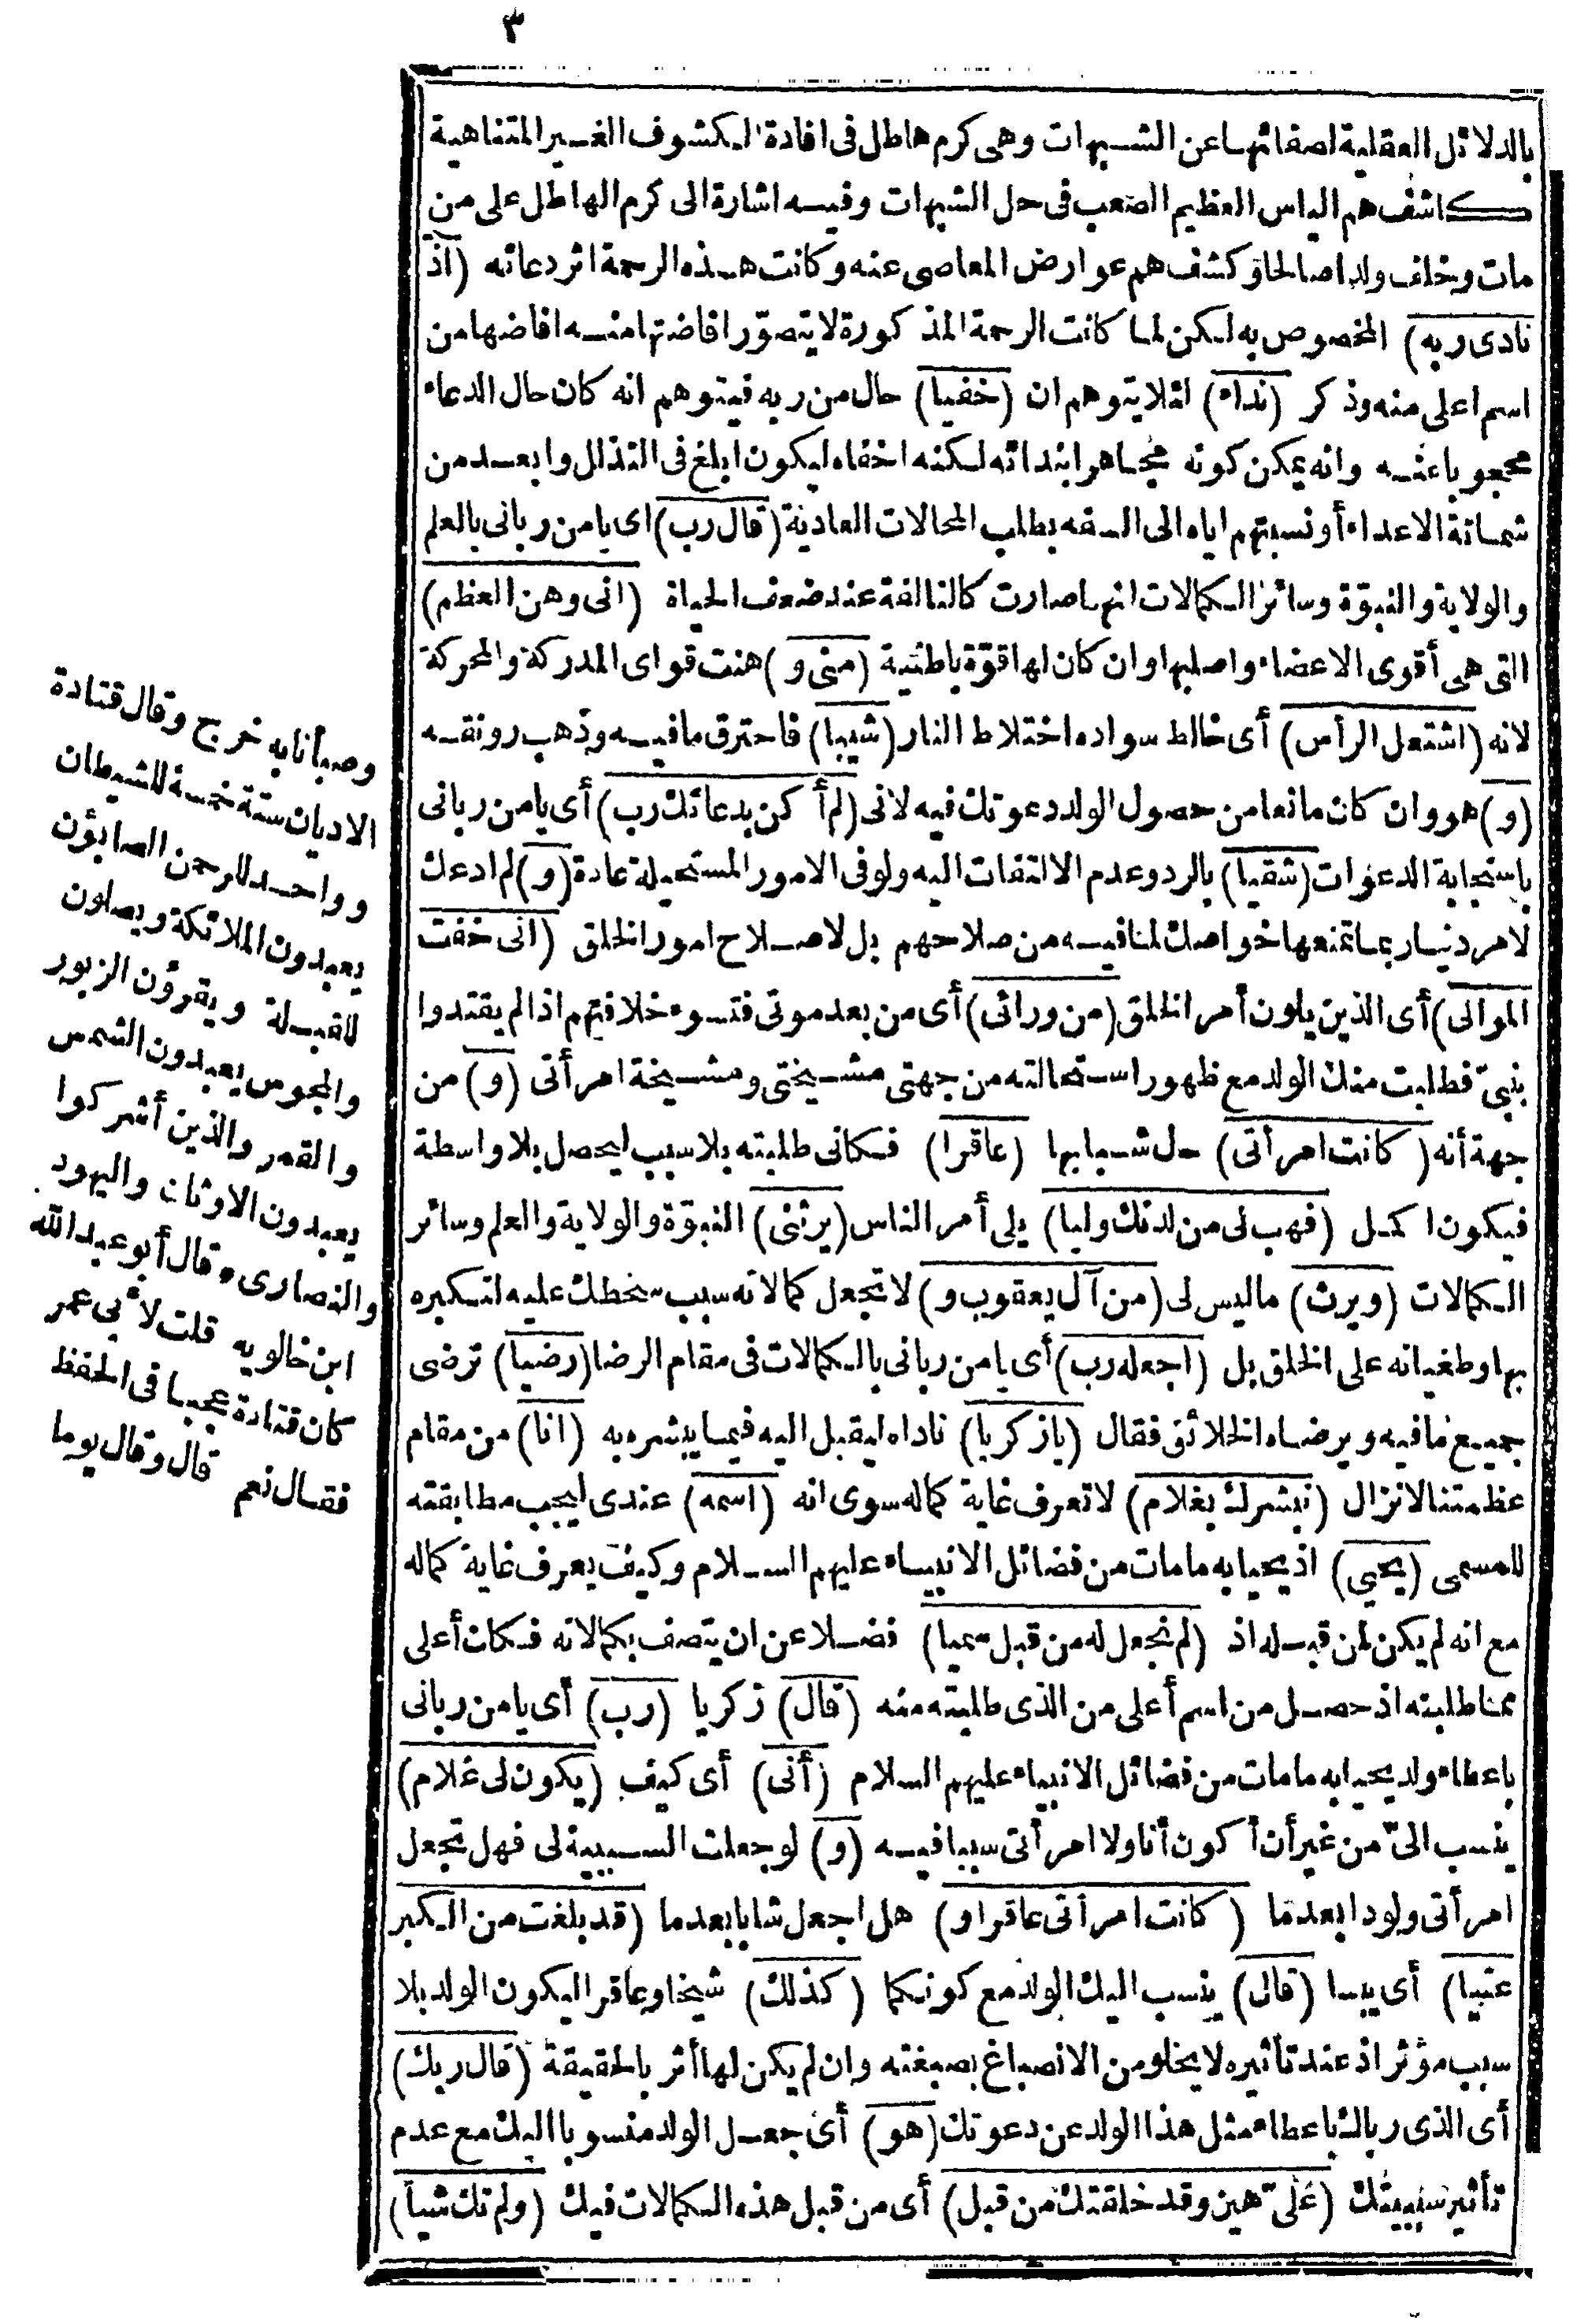 ٣
بالدلائل العقلية لصفائها عن الشبهات وهى كرم هاطل فى افادة الكشوف الغير المتناهية
كاشف هم الياس العظيم الصعب فى حل الشبهات وفيه اشارة الى كرم الهاطل على من
مات وخلف ولدا صالحا وكشف هم عوارض المعاصى عنه وكانت هذه الرحمة اثر دعائه (اذ
نادى ربه) المخصوص به لكن لما كانت الرحمة المذكورة لا يتصوّر افاضتها منه افاضها من
اسم اعلى منه وذكر (نداء) لئلا يتوهم ان (خفيا) حال من ربه فيتوهم انه كان حال الدعاء
محجوبا عنه وانه يمكن كونه مجاهرا بندائه لكنه اخفاه ليكون ابلغ فى التذلل وابعد من
شماتة الاعداء أو نسبتهم اياه الى السفه بطلب المحالات العادية (قال رب) اى يا من ربانى بالعلم
والولاية والنبوّة وسائر الكمالات انها صارت كالتالفة عند ضعف الحياة (انى وهن العظم)
التى هى أقوى الاعضاء واصلبها وان كان لها قوّة باطنية (منى و) هنت قواى المدركة والمحركة
لانه (اشتعل الرأس) أى خالط سواده اختلاط النار (شيبا) فاحترق ما فيه وذهب رونقه
(و) هو وان كان مانعا من حصول الولد دعوتك فيه لانى (لم أكن بدعائك رب) أى يا من ربانى
باستجابة الدعوات (شقيا) بالرد وعدم الالتفات اليه ولو فى الامور المستحيلة عادة (و) لم ادعك
لامر دنيا ربما تمنعها خواصك لمنافيه من صلاحهم بل لاصلاح امور الخلق (انى خفت
الموالى) أى الذين يلون أمر الخلق (من ورائى) أى من بعد موتى فتسوء خلافتهم اذا لم يقتدوا
بنبىّ فطلبت منك الولد مع ظهور استحالته من جهتى مشيختى ومشيخة امرأتى (و) من
جهة أنه (كانت امرأتى) حال شبابها (عاقرا) فكانى طلبته بلا سبب ليحصل بلا واسطة
فيكون اكمل (فهب لى من لدنك وليا) يلى أمر الناس (يرثنى) النبوّة والولاية والعلم وسائر
الكمالات (ويرث) ما ليس لى (من آل يعقوب و) لا تجعل كمالاته سبب سخطك عليه لتكبره
بها وطغيانه على الخلق بل (اجعله رب) أى يا من ربانى بالكمالات فى مقام الرضا (رضيا) ترضى
جميع ما فيه ويرضاه الخلائق فقال (يازكريا) ناداه ليقبل اليه فيما يبشره به (انا) من مقام
عظمتنا لانزال (نبشرك بغلام) لا تعرف غاية كماله سوى انه (اسمه) عندى ليجب مطابقته
للمسمى (يحيى) اذ يحيا به ما مات من فضائل الانبياء عليهم السلام وكيف يعرف غاية كماله
مع انه لم يكن لمن قبله اذ (لم نجعل له من قبل سميا) فضلا عن ان يتصف بكمالاته فكان أعلى
مما طلبته اذ حصل من اسم أعلى من الذى طلبته منه (قال) زكريا (رب) أى يا من ربانى
باعطاء ولد يحيا به ما مات من فضائل الانبياء عليهم السلام (أنى) أى كيف (يكون لى غلام)
ينسب الىّ من غير أن أكون أنا ولا امرأتى سببا فيه (و) لو جعلت السببية لى فهل تجعل
امرأتى ولودا بعدما (كانت امرأتى عاقرا و) هل اجعل شابا بعدما (قد بلغت من الكبر
عتيا) أى يبسا (قال) ينسب اليك الولد مع كونكما (كذلك) شيخا وعاقرا ليكون الولد بلا
سبب مؤثر اذ عند تأثيره لا يخلو من الانصباغ بصبغته وان لم يكن لها أثر بالحقيقة (قال ربك)
أى الذى رباك باعطاء مثل هذا الولد عن دعوتك (هو) أى جعل الولد منسوبا اليك مع عدم
تأثير سببيتك (علىّ هين وقد خلقتك من قبل) أى من قبل هذه الكمالات فيك (ولم تك شيأ)
وصبأ نابه خرج وقال قتادة
الاديان ستة خمسة للشيطان
وواحد للرحمن الصابؤن
يعبدون الملائكة ويصلون
للقبلة ويقرؤن الزبور
والمجوس يعبدون الشمس
والقمر والذين أشركوا
يعبدون الاوثان واليهود
والنصارى وقال أبو عبد الله
ابن خالويه قلت لأبى عمر
كان قتادة عجبا فى الحفظ
فقال نعم قال وقال يوما